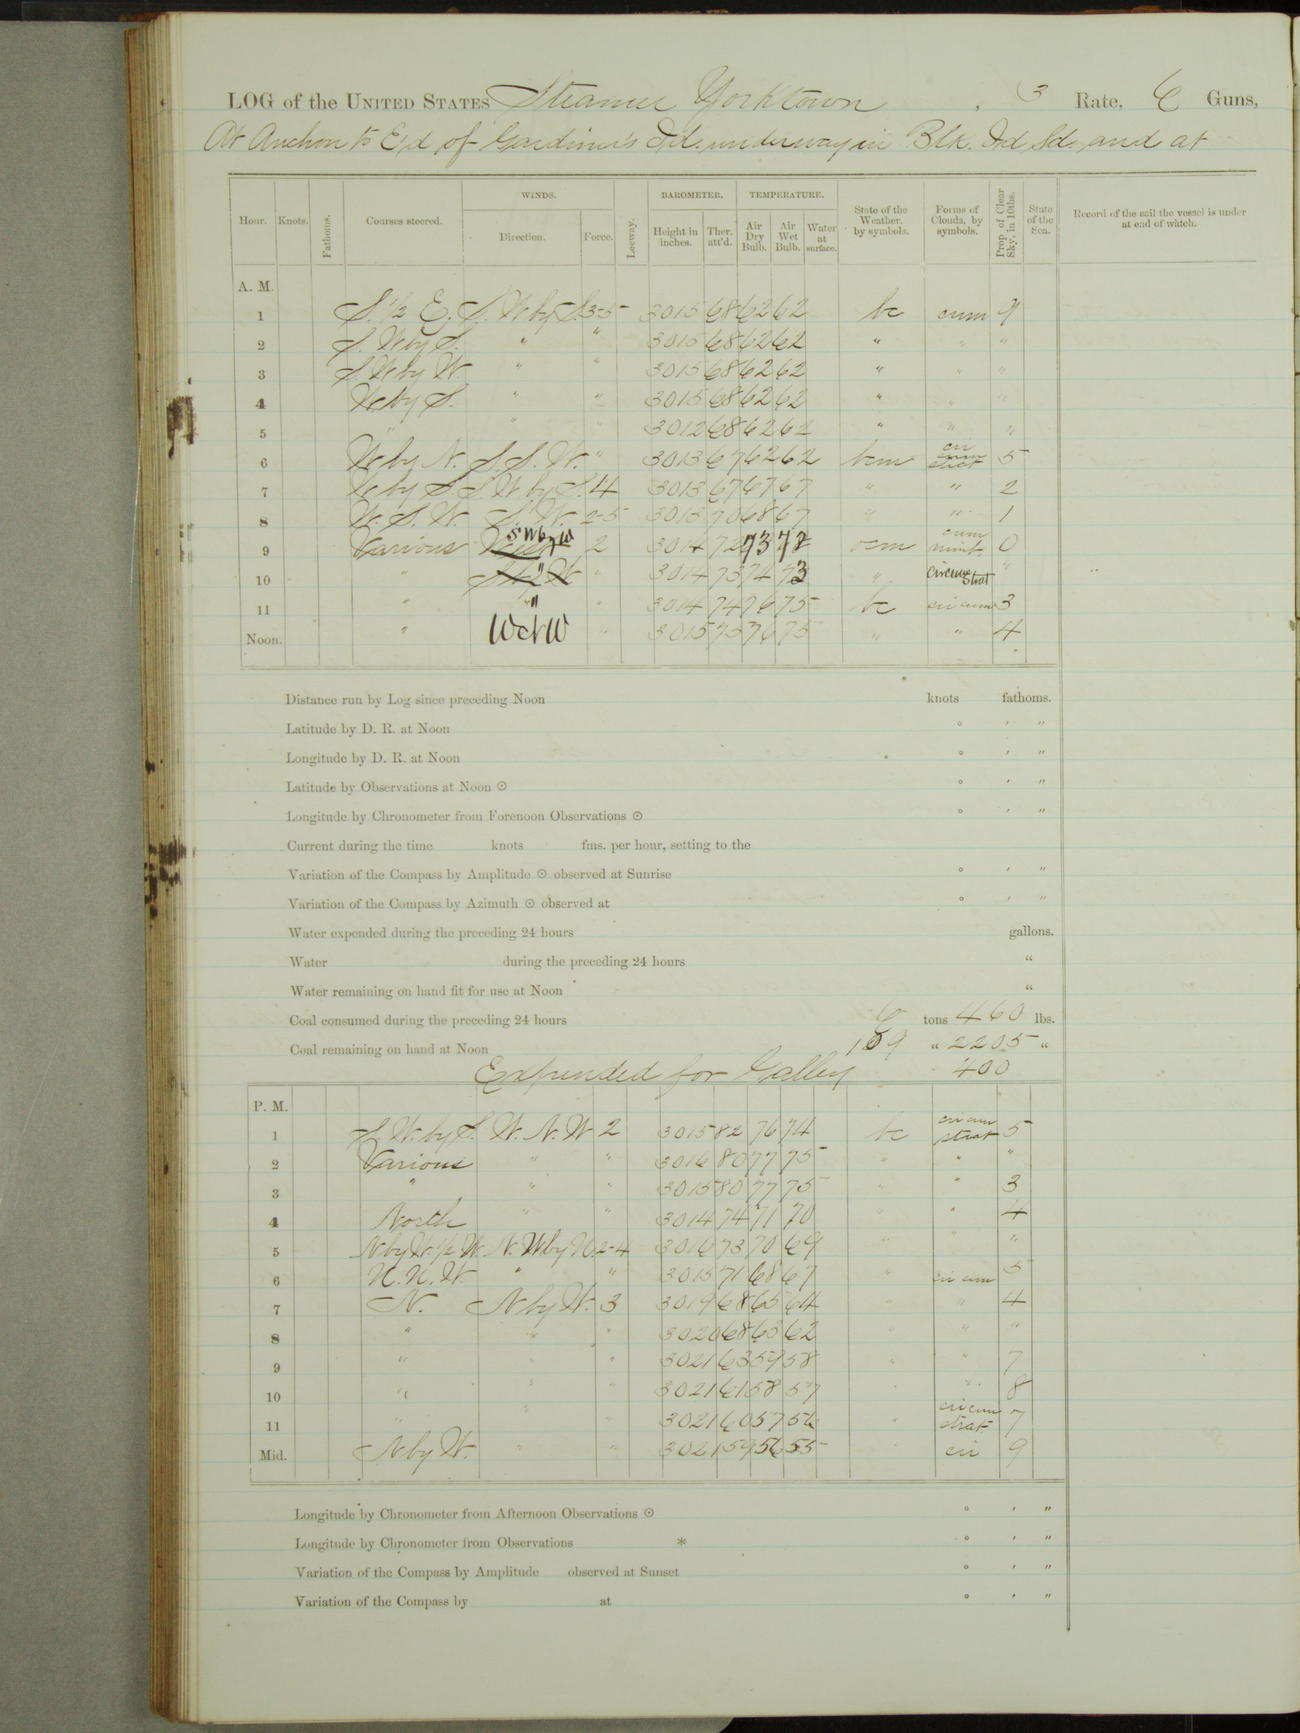 LOG of the UNITED STATES Steamer Yorktown , 3 Rate, 6 Guns,
At Anchor to E'd of Gardiner's Isd. underway in Blk. Isd Sd. and at
WINDS. BAROMETER. TEMPERATURE.
Hour. Knots. Fathoms. Courses steered. Direction. Force. Leeway. Height in inches. Ther. att'd. Air Dry Bulb. Air Wet Bulb. Water at surface. State of the Weather. by symbols. Forms of Clouds, by symbols. Prop. of Clear Sky, in 10ths. State of the Sea. Record of the sail the vessel is under at end of watch.
A. M.
1 S. 1/2 E. S. W by S. 3-5 3015 68 62 62 bc cum 9
2 S. W by S. " " 3015 68 62 62 " " "
3 S W by W. " " 3015 68 62 62 " " "
4 W by S. " " 3015 68 62 62 " " "
5 " " 3012 68 62 62 " " "
6 W by N. S. S. W. " 3013 67 62 62 bcm cir cum strat 5
7 W by S. S W by S. 4 3013 67 67 67 " " 2
8 W. S. W. S. W. 2-5 3013 70 68 67 " " 1
9 Various SWbyW 2 3014 72 73 72 ocm cum nimb. 0
10 " " " 3014 73 74 73 " circum strat "
11 " " " 3014 74 76 75 bc cir cum 3
Noon. " WbyW " 3015 75 76 75 " " 4
Distance run by Log since preceding Noon knots fathoms.
Latitude by D. R. at Noon ° ' "
Longitude by D. R. at Noon ° ' "
Latitude by Observations at Noon ⊙ ° ' "
Longitude by Chronometer from Forenoon Observations ⊙ ° ' "
Current during the time knots fms. per hour, setting to the
Variation of the Compass by Amplitude ⊙ observed at Sunrise ° ' "
Variation of the Compass by Azimuth ⊙ observed at ° ' "
Water expended during the preceding 24 hours gallons.
Water during the preceding 24 hours "
Water remaining on hand fit for use at Noon "
Coal consumed during the preceding 24 hours 6 tons 460 lbs.
Coal remaining on hand at Noon 169 " 2205 "
Expended for Galley 400
P. M.
1 S. W. by S. W. N. W 2 3015 82 76 74 bc cir cum strat 5
2 Various " " 3016 80 77 75 " " "
3 " " " 3015 80 77 75 " " 3
4 North " " 3014 74 71 70 " " 4
5 N by W. 1/2 W. N. W by N. 2-4 3016 73 70 69 " " "
6 N. N. W. " " 3015 71 68 67 " cir cum 5
7 N. N by W. 3 3019 68 65 64 " 4
8 " " " 3020 68 63 62 " " "
9 " " " 3021 63 59 58 " " 7
10 " " " 3021 61 58 57 " " 8
11 " " " 3021 60 57 56 " cir cum strat 7
Mid. N by W. " " 3021 59 56 55 cir 9
Longitude by Chronometer from Afternoon Observations ⊙ ° ' "
Longitude by Chronometer from Observations * ° ' "
Variation of the Compass by Amplitude observed at Sunset ° ' "
Variation of the Compass by at ° ' "